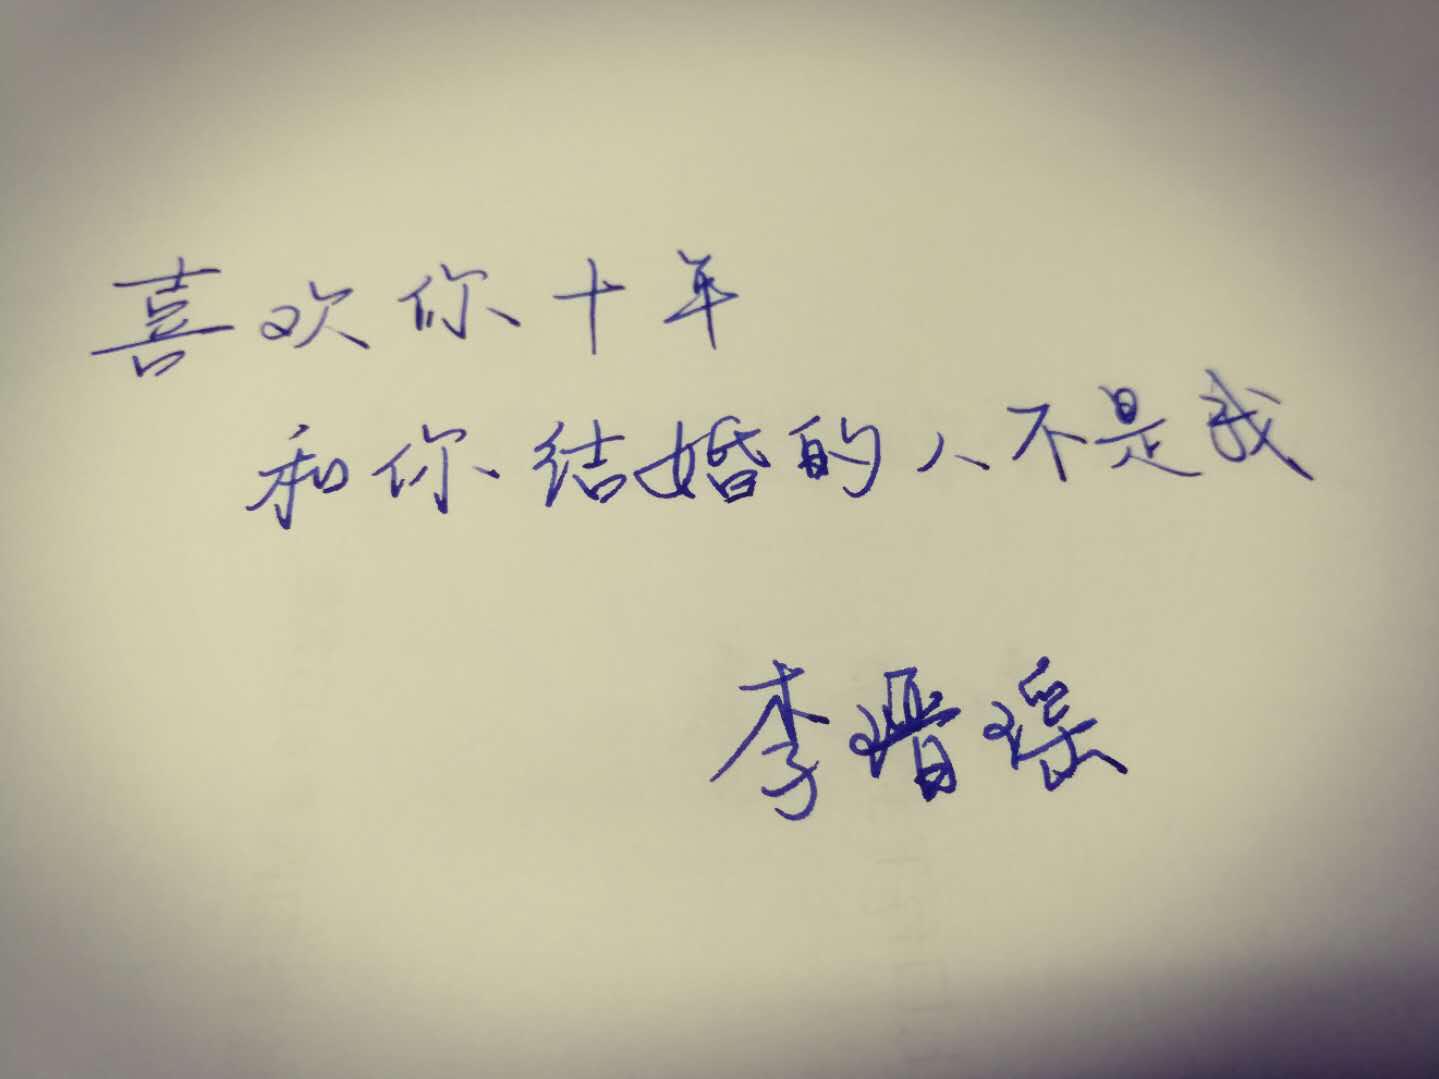 喜欢你十年
和你结婚的人不是我
李瑨瑶